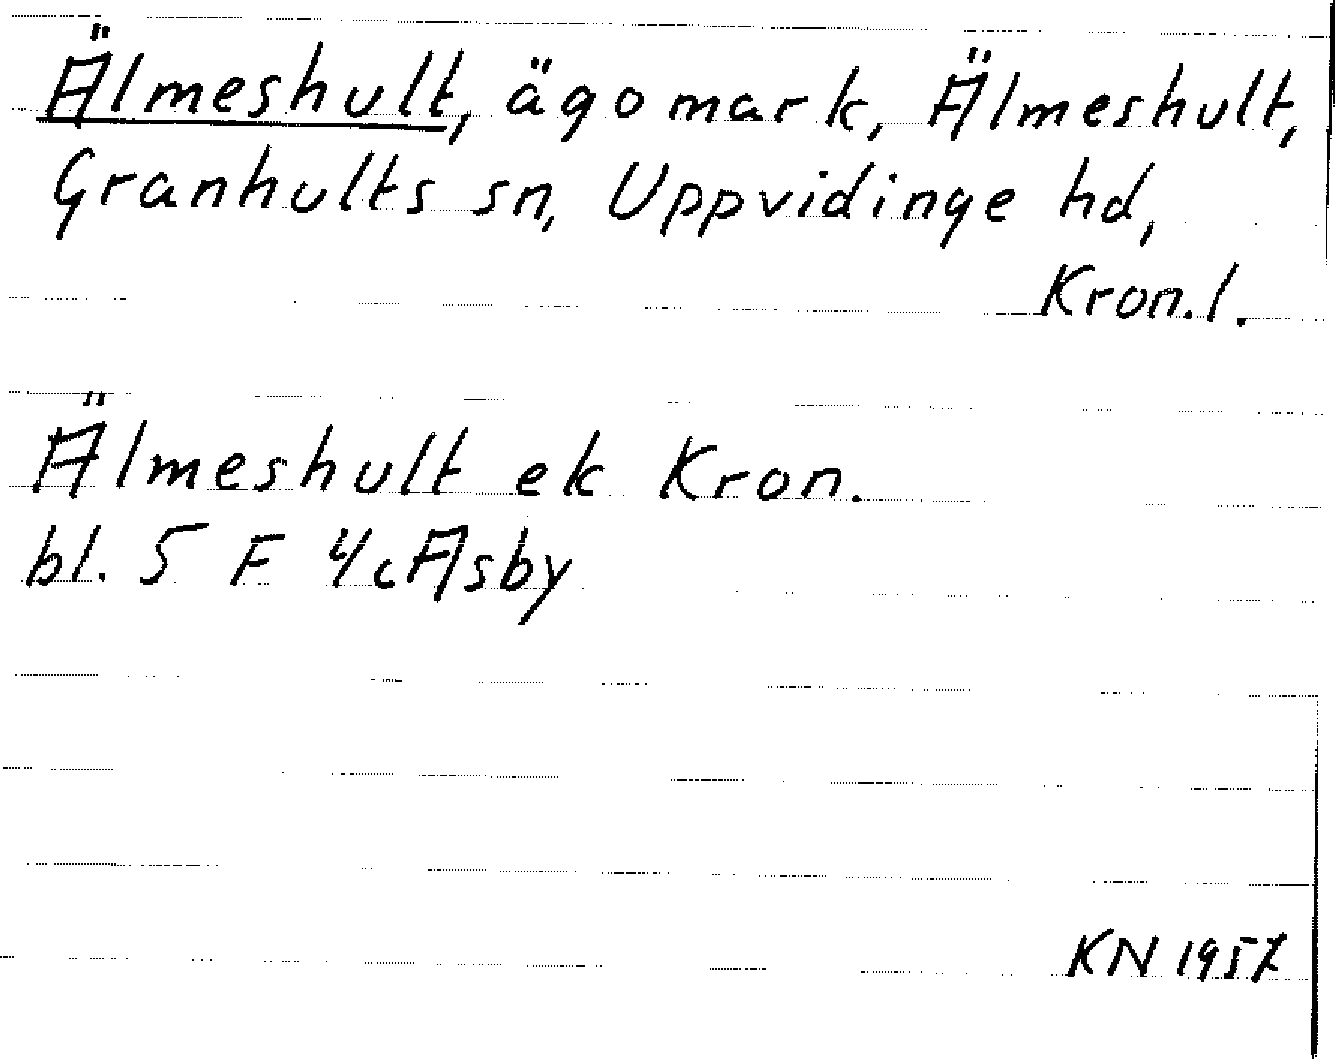 Älmeshult, ägomark, Älmeshult,
Granhults sn, Uppvidinge hd,
Kron. l.
Älmeshult ek Kron.
bl. 5 F 4c Asby
KN 1957